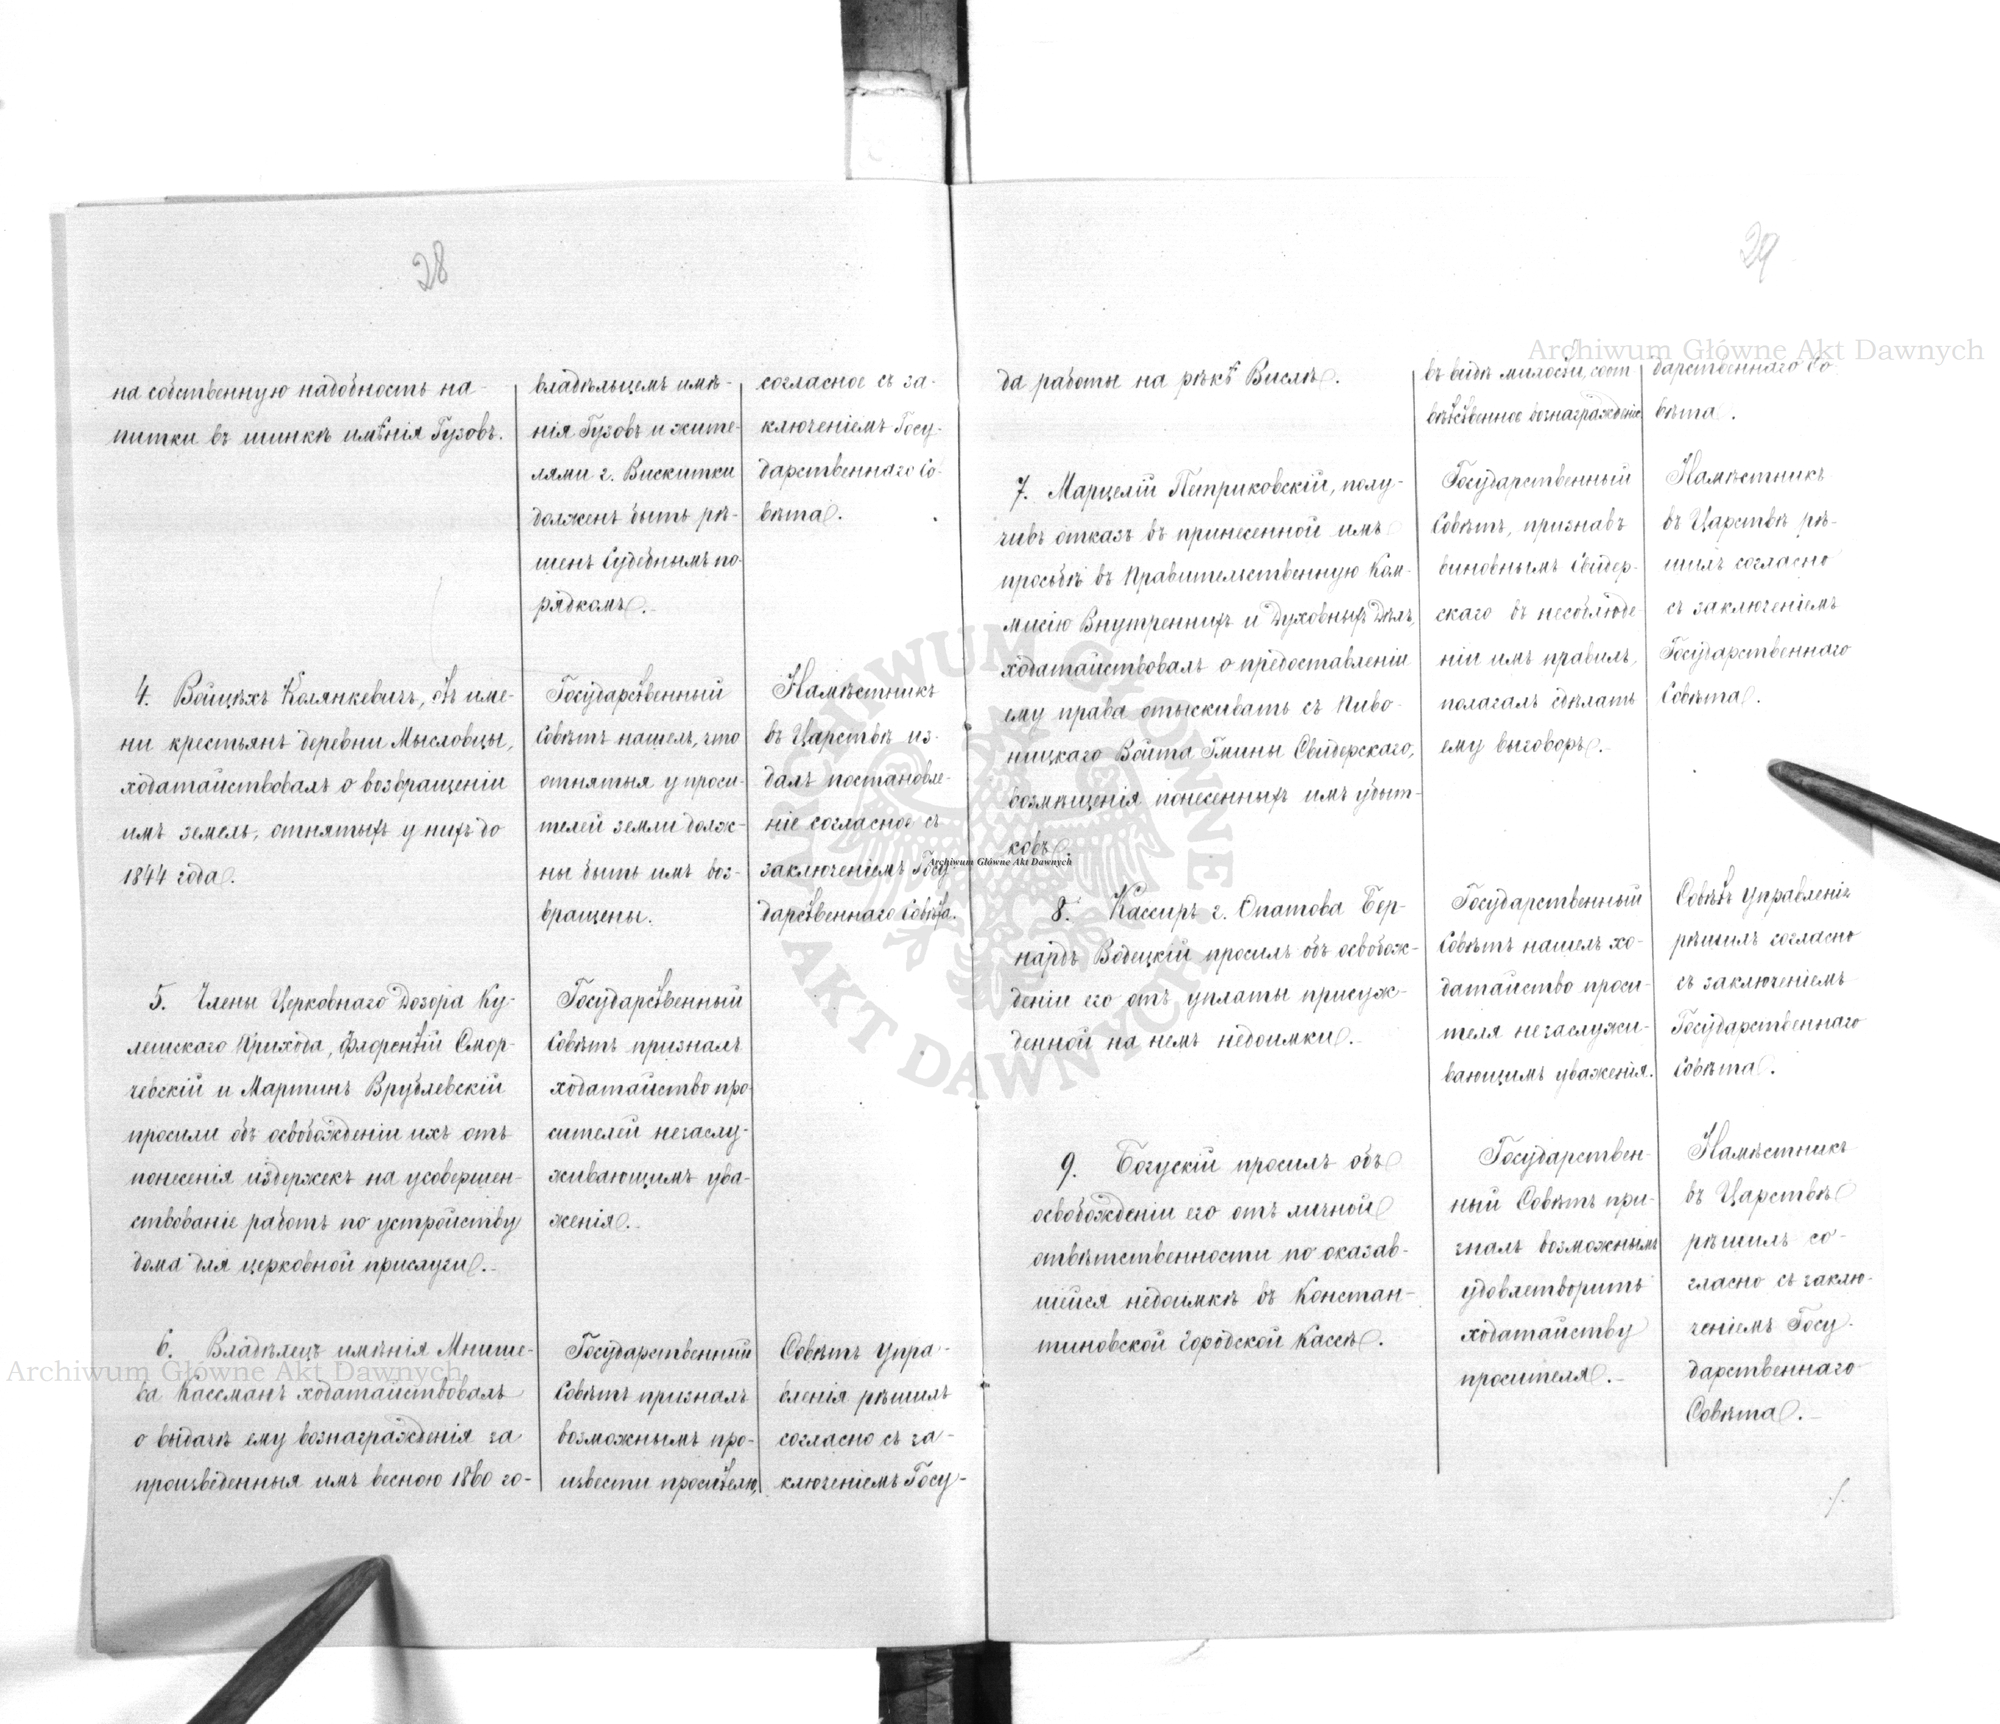 28
на собственную надобность на-
питки въ шинкѣ имѣнія Гузовъ.
владѣльцемъ имѣ-
нія Гузовъ и жите-
лями г. Вискитки
долженъ быть рѣ-
шенъ Судебнымъ по-
рядкомъ.
согласное съ за-
ключеніемъ Госу-
дарственнаго Со-
вѣта.
4. Войцѣхъ Колянкевичъ, отъ име-
ни крестьянъ деревни Мысловцы,
ходатайствовалъ о возвращеніи
имъ земель, отнятыхъ у нихъ до
1844 года.
Государственный
Совѣтъ нашелъ, что
отнятыя у проси-
телей земли долж-
ны быть имъ воз-
вращены.
Намѣстникъ
въ Царствѣ из-
далъ постановле-
ніе согласное съ
заключеніемъ Госу-
дарственнаго Совѣта.
5. Члены Церковнаго Дозора Ку-
лешскаго Прихода, Флорентій Смор-
чевскій и Мартинъ Врублевскій
просили объ освобожденіи ихъ отъ
понесенія издержекъ на усовершен-
ствованіе работъ по устройству
дома для церковной прислуги.
Государственный
Совѣтъ призналъ
ходатайство про-
сителей незаслу-
живающимъ ува-
женія.
6. Владѣлецъ имѣнія Мнише-
ва Кассманъ ходатайствовалъ
о выдачѣ ему вознагражденія за
произведенныя имъ весною 1860 го-
Государственный
Совѣтъ призналъ
возможнымъ про-
извести просителю,
Совѣтъ Упра-
вленія рѣшилъ
согласно съ за-
ключеніемъ Госу-
29
да работы на рѣкѣ Вислѣ.
въ видѣ милости, соот
вѣтственное вознагражденіе
дарственнаго Со
вѣта.
7. Марцелій Петриковскій, полу-
чивъ отказъ въ принесенной имъ
просьбѣ въ Правительственную Ком-
мисію Внутреннихъ и Духовныхъ Дѣлъ,
ходатайствовалъ о предоставленіи
ему права отыскивать съ Пиво-
ницкаго Войта Гмины Свидерскаго,
возмѣщенія понесенныхъ имъ убыт-
ковъ.
Государственный
Совѣтъ, признавъ
виновнымъ Свидер-
скаго въ несоблюде-
ніи имъ правилъ,
полагалъ сдѣлать
ему выговоръ.
Намѣстникъ
въ Царствѣ рѣ-
шилъ согласно
съ заключеніемъ
Государственнаго
Совѣта.
8. Кассиръ г. Опатова Бер-
нардъ Водецкій просилъ объ освобож-
деніи его отъ уплаты присуж-
денной на немъ недоимки.
Государственный
Совѣтъ нашелъ хо-
датайство проси-
теля незаслужи-
вающимъ уваженія.
Совѣтъ Управленія
рѣшилъ согласно
съ заключеніемъ
Государственнаго
Совѣта.
9. Богускій просилъ объ
освобожденіи его отъ личной
отвѣтственности по оказав-
шейся недоимкѣ въ Констан-
тиновской Городской Кассѣ.
Государствен-
ный Совѣтъ при-
зналъ возможнымъ
удовлетворить
ходатайству
просителя.
Намѣстникъ
въ Царствѣ
рѣшилъ со-
гласно съ заклю-
ченіемъ Госу-
дарственнаго
Совѣта.
Archiwum Główne Akt Dawnych
Archiwum Główne Akt Dawnych
Archiwum Główne Akt Dawnych
ARCHIWUM GŁÓWNE AKT DAWNYCH